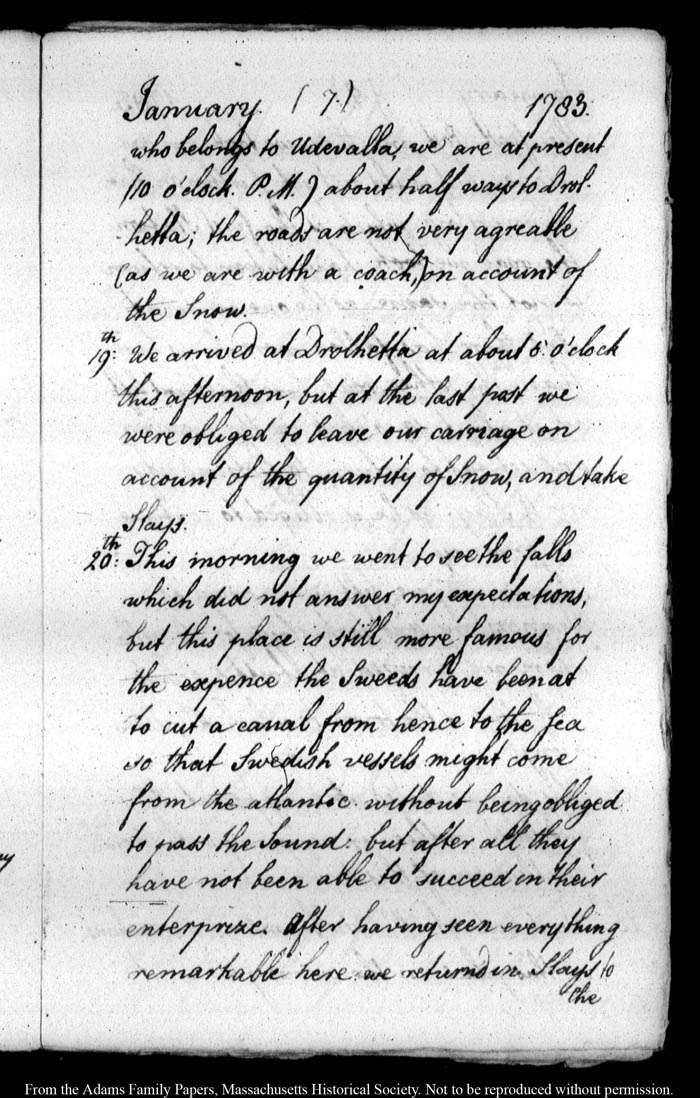 January. (7.) 1783.
who belongs to Udevalla, we are at present
(10 o'clock. P.M.) about half ways to Drol-
-hetta; the roads are not very agreable
(as we are with a coach,) on account of
the Snow.
19th: We arrived at Drolhetta at about 5. o'clock
this afternoon, but at the last post we
were obliged to leave our carriage on
account of the quantity of Snow, and take
Slays.
20th: This morning we went to see the falls
which did not answer my expectations,
but this place is still more famous for
the expence the Sweeds have been at
to cut a canal from hence to the sea
so that Swedish vessels might come
from the atlantic without being obliged
to pass the Sound: but after all they
have not been able to succeed in their
enterprize. After having seen everything
remarkable here we returnd in Slays to
the
From the Adams Family Papers, Massachusetts Historical Society. Not to be reproduced without permission.